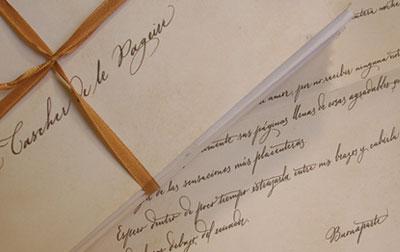 Tascher de le Pagerie
entera noche
amor, por no recibir ninguna not
amente sus páginas llenas de cosas agradables q
de las sensaciones más placenteras.
Espero dentro de poco tiempo estrujarla entre mis brazos y cubrirla
debajo del ecuador.
Buonaparte